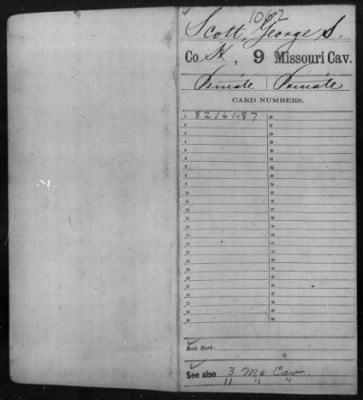 1062
Scott, George S.
Co. H, 9 Missouri Cav.
Private | Private
CARD NUMBERS.
1 82161187
Book Mark:
See also 3 Mo Cav.
" " "